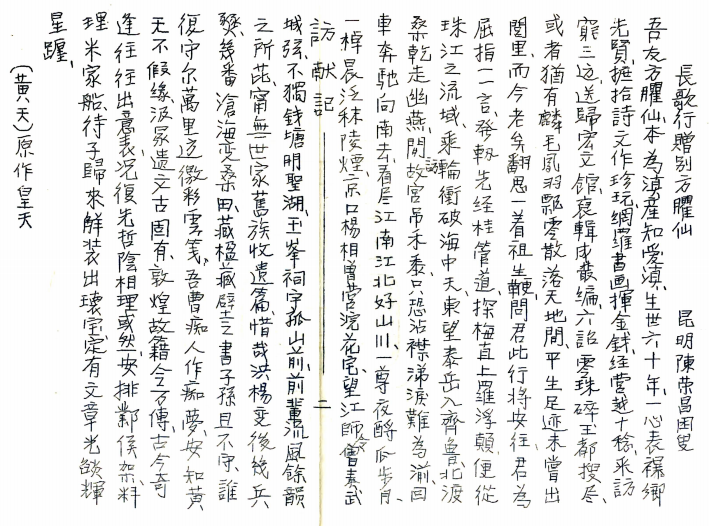 長歌行贈別方臞仙 昆明陳榮昌困叟
吾友方臞仙本為滇產知愛滇生世六十年一心表襮鄉
先賢摭拾詩文作珍玩網羅書畫揮金錢經營越十稔采訪
窮三迆送歸宏文館裒輯成叢編六詔零珠碎玉都搜尽
或者猶有麟毛鳳羽飄零散落天地間平生足迹未嘗出
閭里而今老矣翻思一着祖生鞭問君此行將安往君為
屈指一一言發軔先經桂管道探梅直上羅浮顛便從
珠江之流域乘輪衝破海中天東望泰岳入齊魯北渡
桑乾走幽燕間訪故宮吊禾黍只恐沾襟涕淚難為湔回
車奔馳向南去看尽江南江北好山川一尊夜酹瓜步月
一棹晨泛秣陵煙京口楊相曾營浣花宅望江師 曾奏武
訪獻記 二
城弦不獨錢塘明聖湖玉峯祠宇孤山前前輩流風餘韻
之所芘甯無世家舊族收遺篇惜哉洪楊變後幾兵
燹幾番滄海變桑田藏楹藏壁之書子孫且不守誰
復守尔萬里边徼彩雲箋吾曹痴人作痴夢安知黄
天不假緣汲冢遺文古固有敦煌故籍今乃傳古今奇
逢往往出意表況復先哲陰相理或然安排鄴侯架料
理米家船待子歸來解装出瓌宝定有文章光燄輝
星躔
（黄天）原作皇天